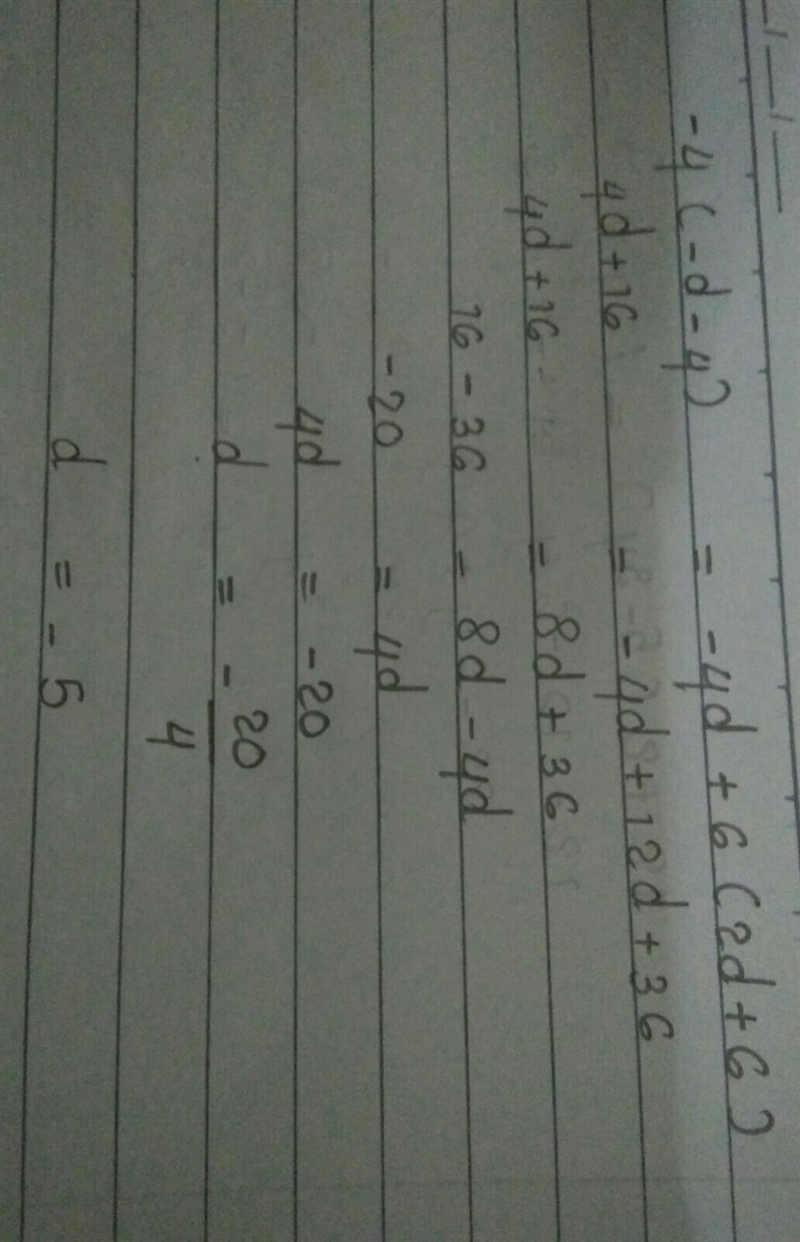 -4(-d-4) = -4d + 6(2d+6)
4d+16 = -4d+12d+36
4d+16 = 8d+36
16-36 = 8d-4d
-20 = 4d
4d = -20
d = -20/4
d = -5